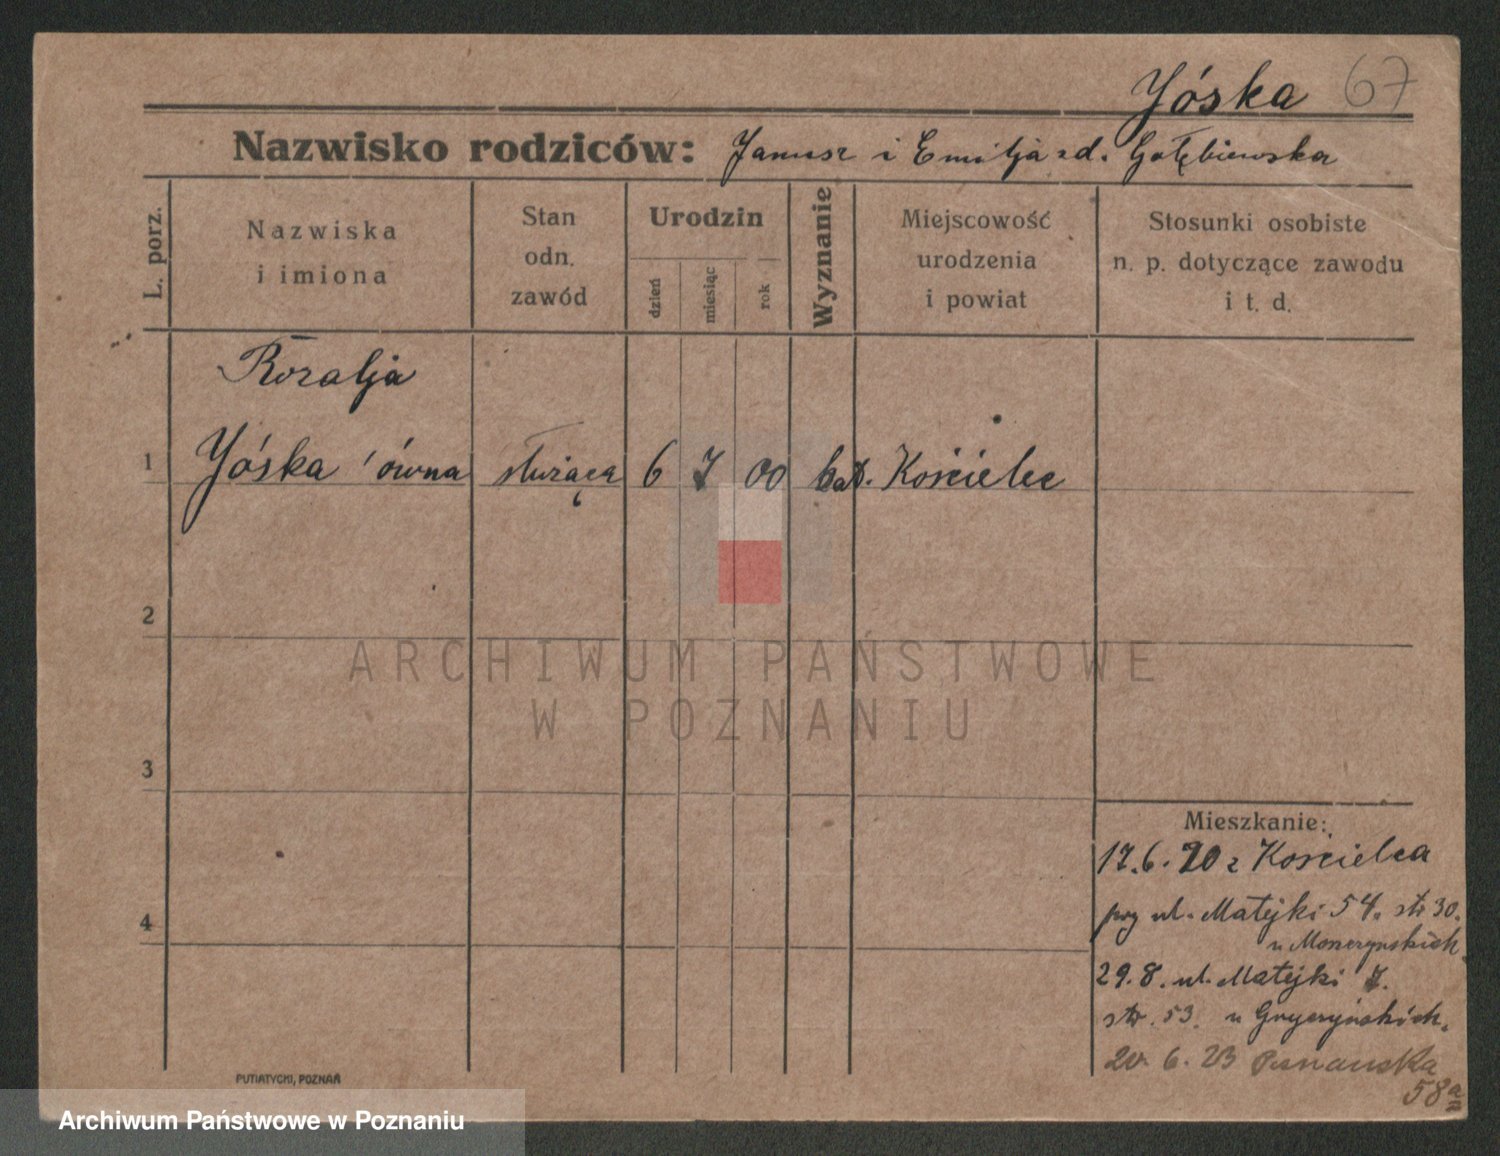 Yóska 67
Nazwisko rodziców: Janusz i Emilja zd. Gołębiewska
L. porz.
Nazwiska
i imiona
Stan
odn.
zawód
Urodzin
dzień
miesiąc
rok
Wyznanie
Miejscowość
urodzenia
i powiat
Stosunki osobiste
n. p. dotyczące zawodu
i t. d.
Rozalja
1 Yóska 'ówna służąca 6 7 00 kat. Kościelec
2
ARCHIWUM PAŃSTWOWE
W POZNANIU
3
4
Mieszkanie:
17.6.20 z Kościelca
przy ul. Matejki 54. str 30.
u
29.8. ul. Matejki 7.
str. 53. u Gryczyńskich.
20.6.23 Poznańska
58a
PUTIATYCKI, POZNAŃ
Archiwum Państwowe w Poznaniu